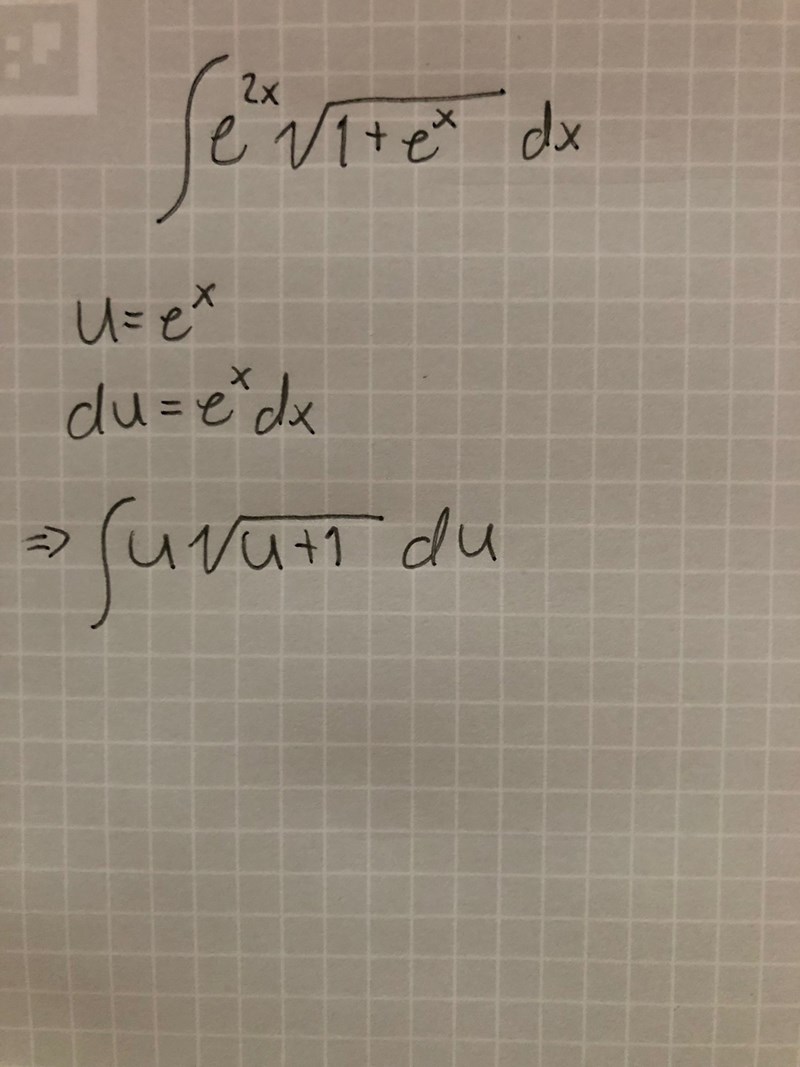 ∫e^{2x} √(1+e^x) dx
u=e^x
du=e^x dx
⇒ ∫u√(u+1) du